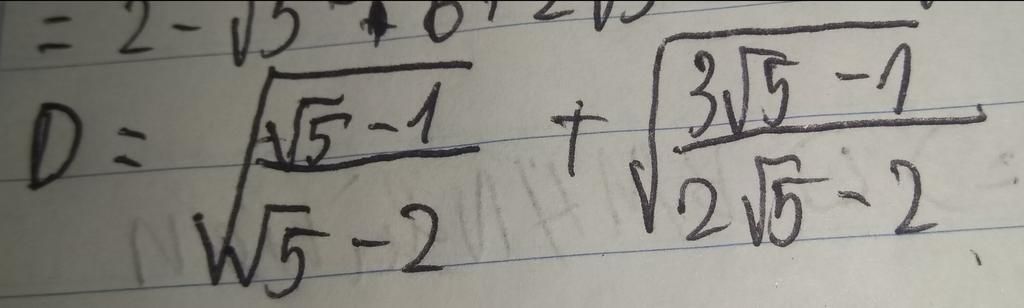 = 2 - √5 + 6 + 2√5
D = √((√5 - 1)/(√5 - 2)) + √((3√5 - 1)/(2√5 - 2))